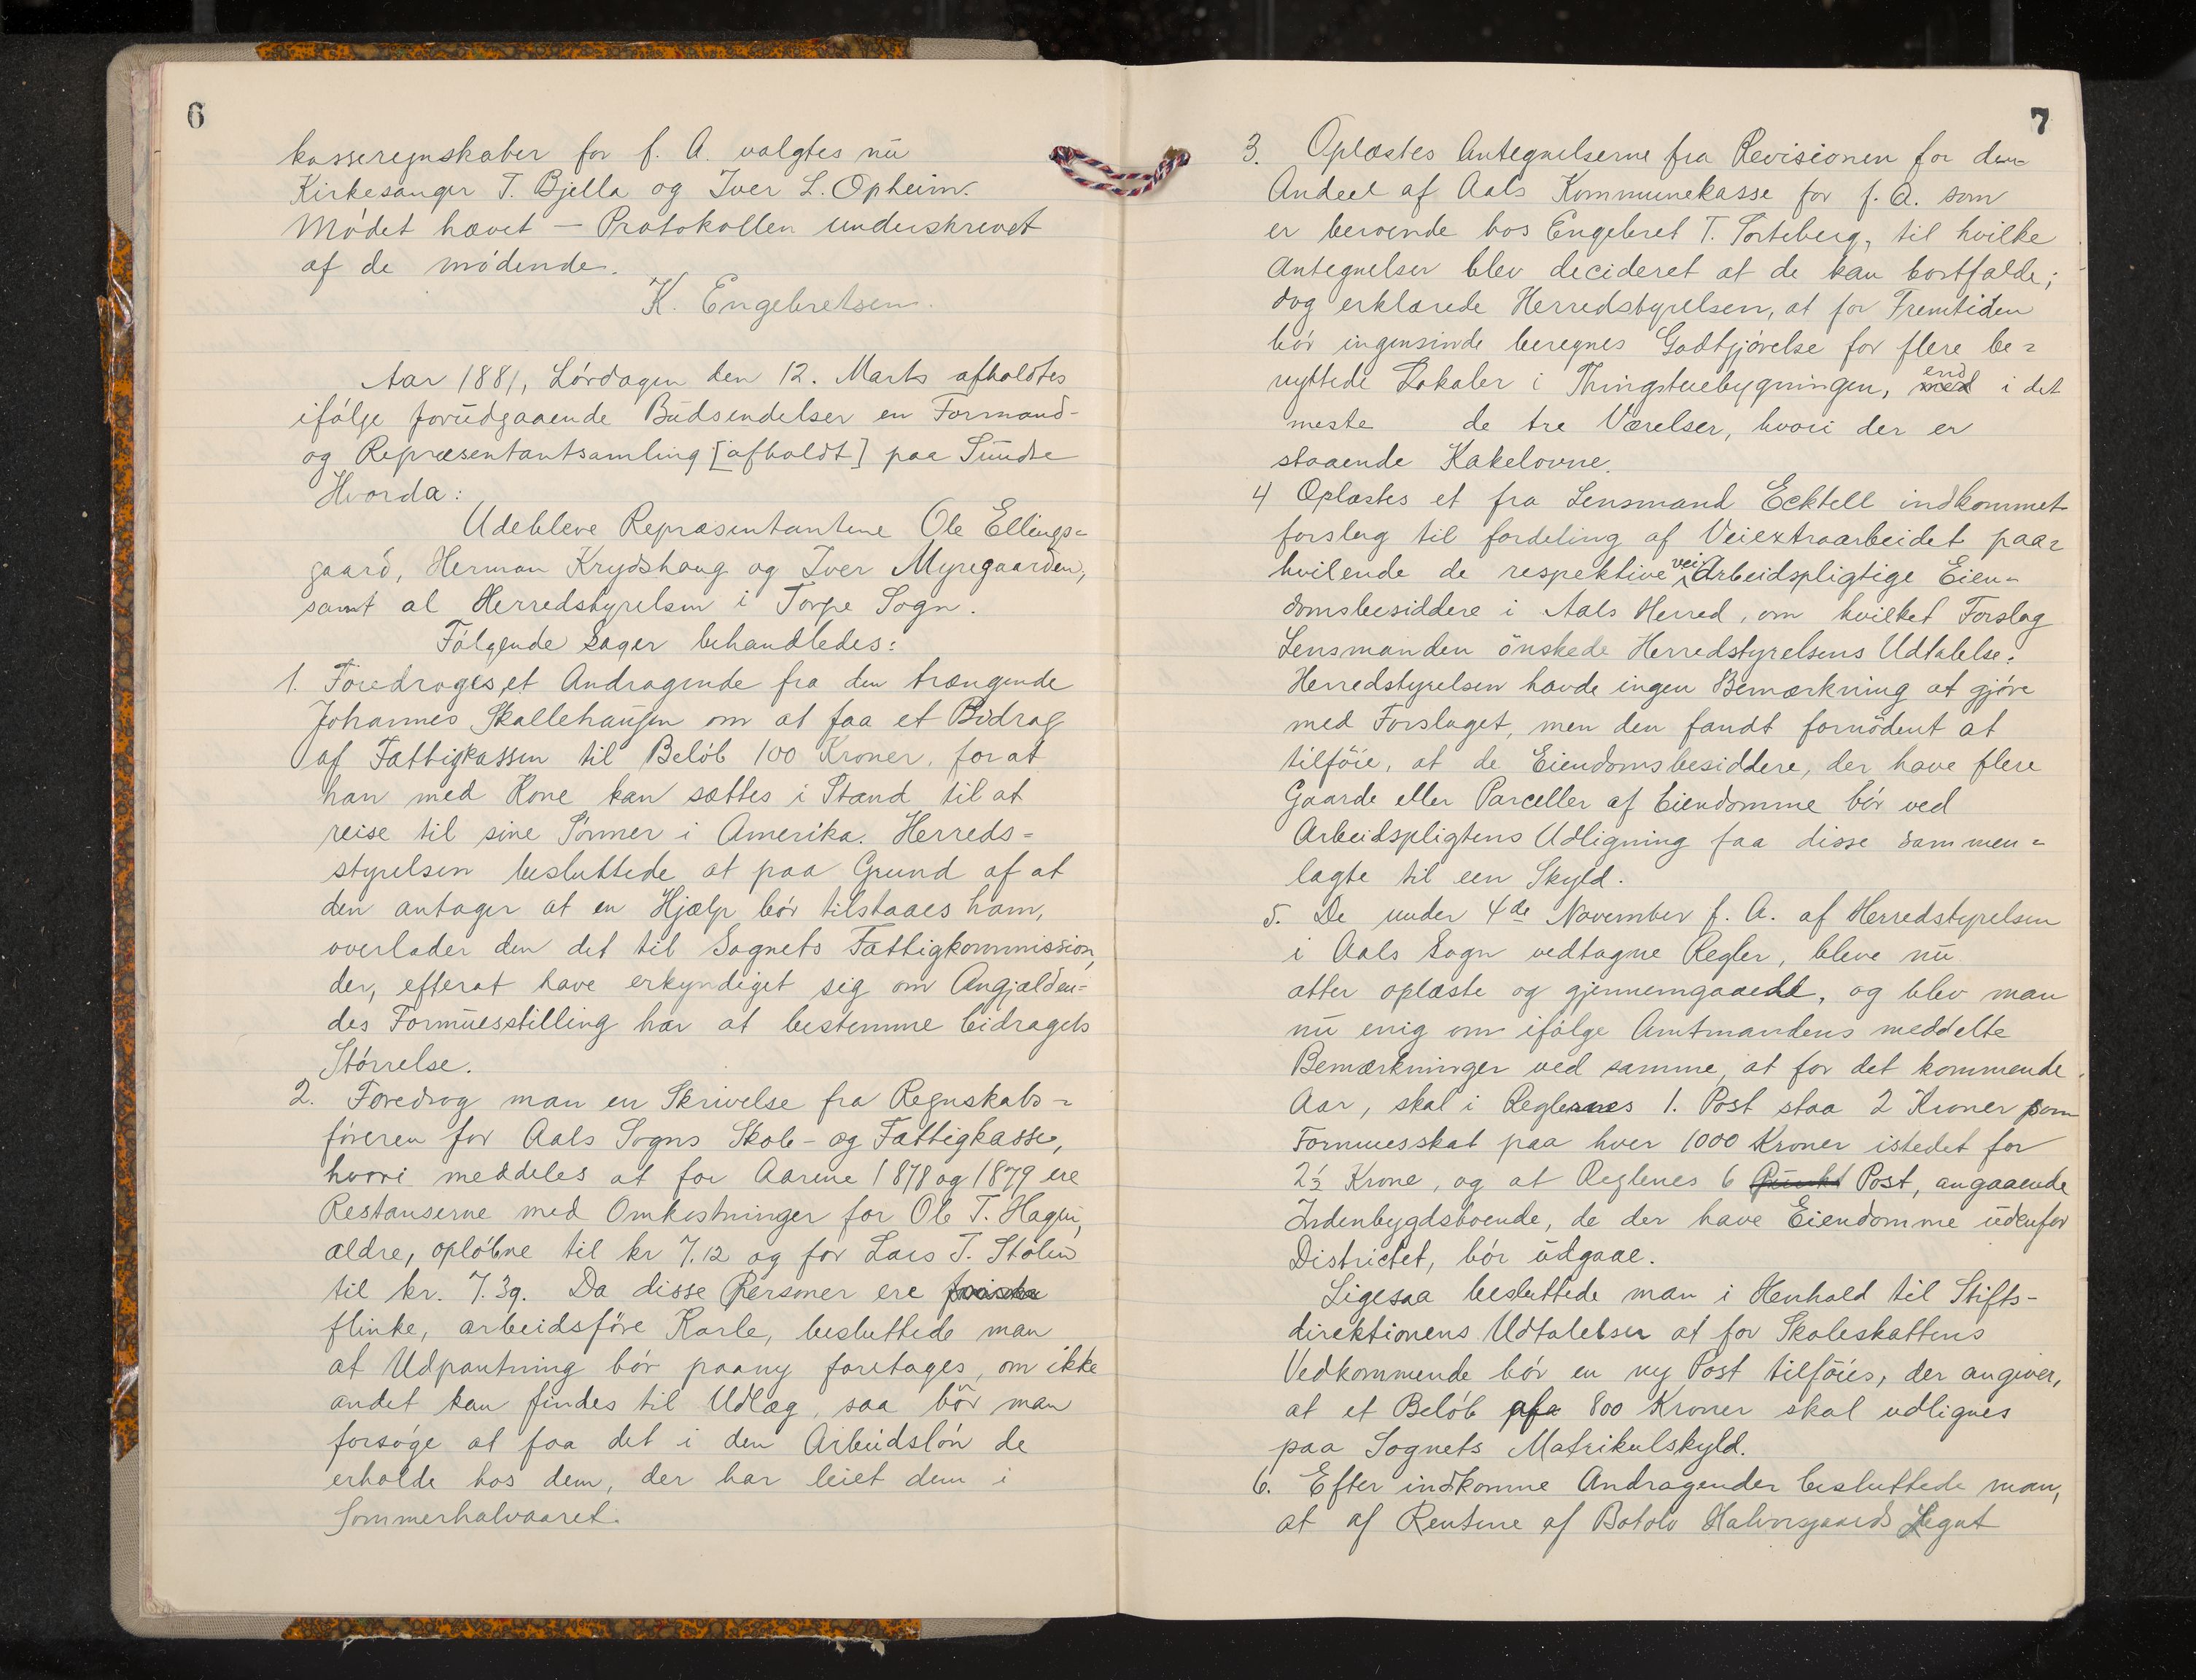 6
kasseregnskaber for f. A. valgtes nu
Kirkesanger T. Bjella og Iver L. Opheim.
Mødet hævet — Protokollen underskrevet
af de mødende.
K. Engebretsen.
Aar 1881, Lørdagen den 12. Marts afholdtes
ifølge forudgaaende Budsendelser en Formand-
og Repræsentantsamling [afholdt] paa Sundre
Hvorda:
Udebleve Repræsentantene Ole Ellings-
gaard, Herman Krydshaug og Iver Myregaarden,
samt al Herredstyrelsen i Torpe Sogn.
Følgende Sager behandledes:
1. Foredroges et Andragende fra den trængende
Johannes Skallehaugen om at faa et Bidrag
af Fattigkassen til Beløb 100 Kroner, for at
han med Kone kan sættes i Stand til at
reise til sine Sønner i Amerika. Herreds-
styrelsen besluttede at paa Grund af at
den antager at en Hjælp bør tilstaaes ham,
overlader den det til Sognets Fattigkommission,
der, efterat have erkyndiget sig om Angjælden-
des Formuesstilling har at bestemme bidragets
Størrelse.
2. Foredrog man en Skrivelse fra Regnskabs-
føreren for Aals Sogns Skole- og Fattigkasse,
hvori meddeles at for Aarene 1878 og 1879 ere
Restanserne med Omkostninger for Ole T. Hagen,
ældre, opløbne til kr 7.12 og for Lars T. Stølen
til kr. 7.39. Da disse Personer ere
flinke, arbeidsføre Karle, besluttede man
at Udpantning bør paany foretages, om ikke
andet kan findes til Udlæg, saa bör man
forsøge at faa det i den Arbeidsløn de
erholde hos dem, der har leiet dem i
Sommerhalvaaret.
7
3. Oplæstes Antegnelserne fra Revisionen for den
Andeel af Aals Kommunekasse for f. A. som
er beroende hos Engebret T. Torteberg, til hvilke
Antegnelser blev decideret at de kan bortfalde;
dog erklærede Herredstyrelsen, at for Fremtiden
bør ingensinde beregnes Godtgjørelse for flere be-
nyttede Lokaler i Thingstuebygningen, med end i det
meste de tre Værelser, hvori der er
staaende Kakelovne.
4 Oplæstes et fra Lensmand Ecktell indkommet
forslag til fordeling af Veiextraarbeidet paa-
hvilende de respektive vei Arbeidspligtige Eien-
domsbesiddere i Aals Herred, om hvilket Forslag
Lensmanden önskede Herredstyrelsens Udtalelse.
Herredstyrelsen havde ingen Bemærkning at gjøre
med Forslaget, men den fandt fornødent at
tilföie, at de Eiendomsbesiddere, der have flere
Gaarde eller Parceller af Eiendomme bør ved
Arbeidspligtens Udligning faa disse sammen-
lagte til een Skyld.
5. De under 4de November f. A. af Herredstyrelsen
i Aals Sogn vedtagne Regler, bleve nu
atter oplæste og gjennemgaaede, og blev man
nu enig om ifølge Amtmandens meddelte
Bemærkninger ved samme, at for det kommende
Aar, skal i Reglernes 1. Post staa 2 Kroner som
Formuesskat paa hver 1000 Kroner istedet for
2½ Krone, og at Reglenes 6 Punkt Post, angaaende
Indenbygdsboende, de der have Eiendomme udenfor
Districtet, bør udgaae.
Ligesaa besluttede man i Henhold til Stifts-
direktionens Udtalelser at for Skoleskattens
Vedkommende bør en ny Post tilföies, der angiver,
at et Beløb af 800 Kroner skal udlignes
paa Sognets Matrikulskyld.
6. Efter indkomne Andragender besluttede man,
at af Rentene af Botolv Halvorsgaards Legat